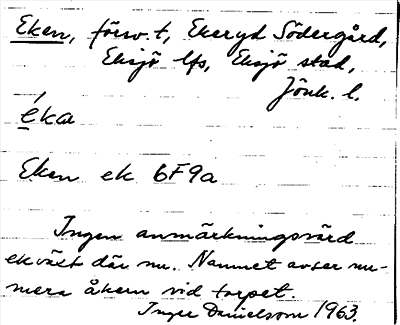 Eken, förv. t, Ekeryd Södergård,
Eksjö lfs, Eksjö stad,
Jönk. l.
éka
Eken ek 6F9a
Ingen anmärkningsvärd
ekväxt där nu. Namnet avser nu-
mera åkern vid torpet.
Inger Danielsson 1963.